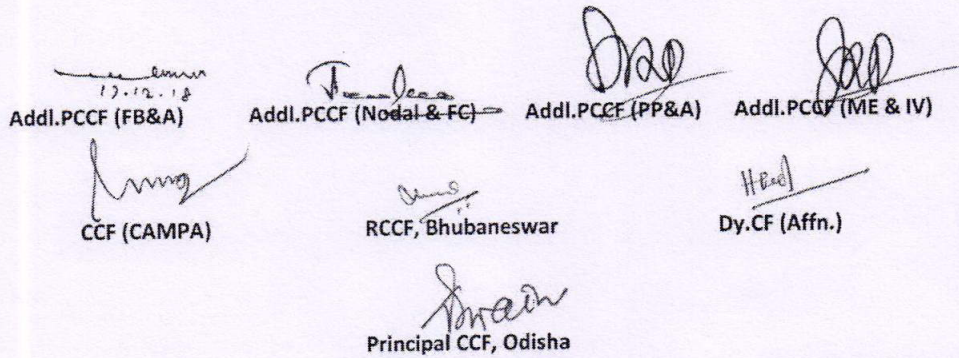 17.12.18
Addl.PCCF (FB&A) Addl.PCCF (Nodal & FC) Addl.PCCF (PP&A) Addl.PCCF (ME & IV)
CCF (CAMPA) RCCF, Bhubaneswar Dy.CF (Affn.)
Principal CCF, Odisha